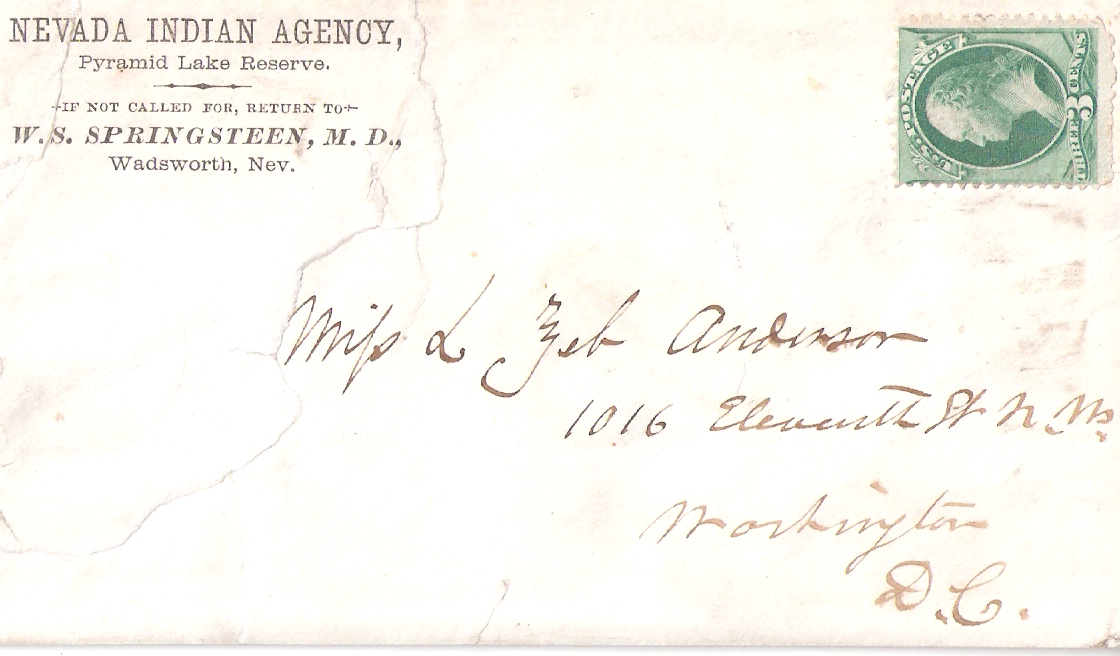 NEVADA INDIAN AGENCY,
Pyramid Lake Reserve.
IF NOT CALLED FOR, RETURN TO
W. S. SPRINGSTEEN, M. D.,
Wadsworth, Nev.
U.S. POSTAGE
THREE 3 CENTS
Miss L Zeb Anderson
1016 Eleventh St N. W.
Washington
D.C.